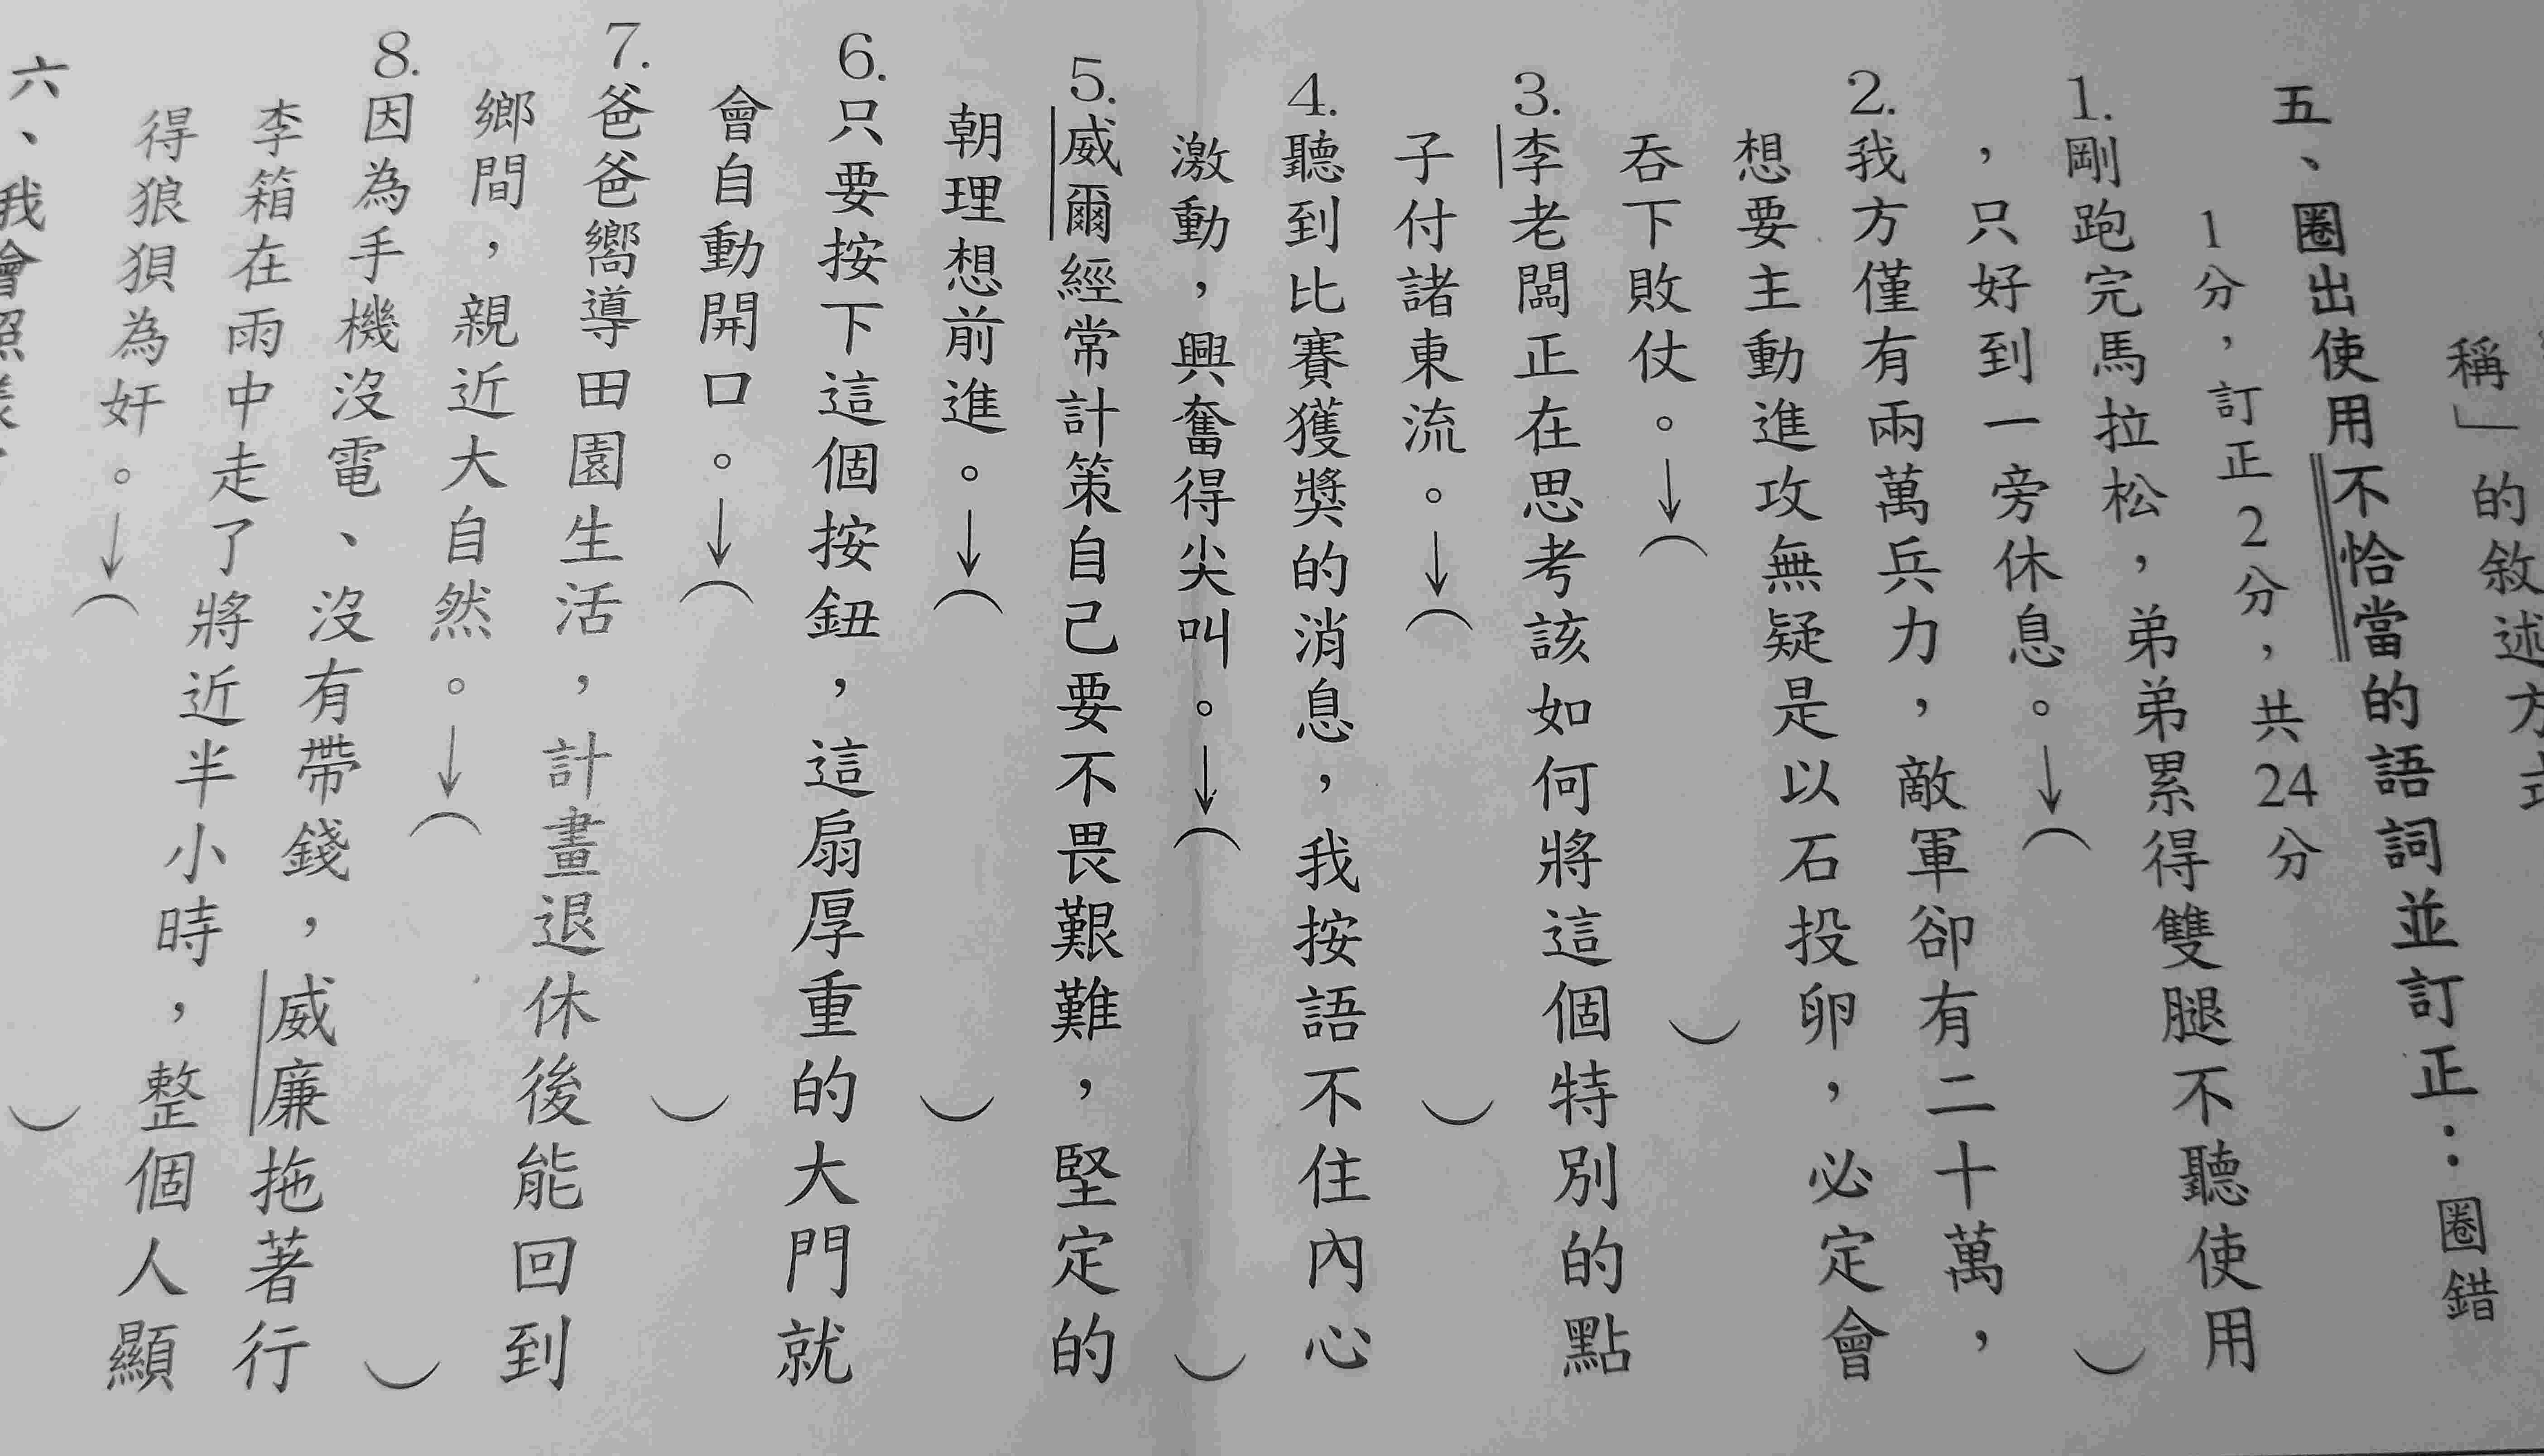 稱」的敘述方
五、圈出使用不恰當的語詞並訂正：圈錯
1分，訂正2分，共24分
1.剛跑完馬拉松，弟弟累得雙腿不聽使用
，只好到一旁休息。↓（　）
2.我方僅有兩萬兵力，敵軍卻有二十萬，
想要主動進攻無疑是以石投卵，必定會
吞下敗仗。↓（　）
3.李老闆正在思考該如何將這個特別的點
子付諸東流。↓（　）
4.聽到比賽獲獎的消息，我按語不住內心
激動，興奮得尖叫。↓（　）
5.威爾經常計策自己要不畏艱難，堅定的
朝理想前進。↓（　）
6.只要按下這個按鈕，這扇厚重的大門就
會自動開口。↓（　）
7.爸爸嚮導田園生活，計畫退休後能回到
鄉間，親近大自然。↓（　）
8.因為手機沒電、沒有帶錢，威廉拖著行
李箱在雨中走了將近半小時，整個人顯
得狼狽為奸。↓（　）
六、我會照樣